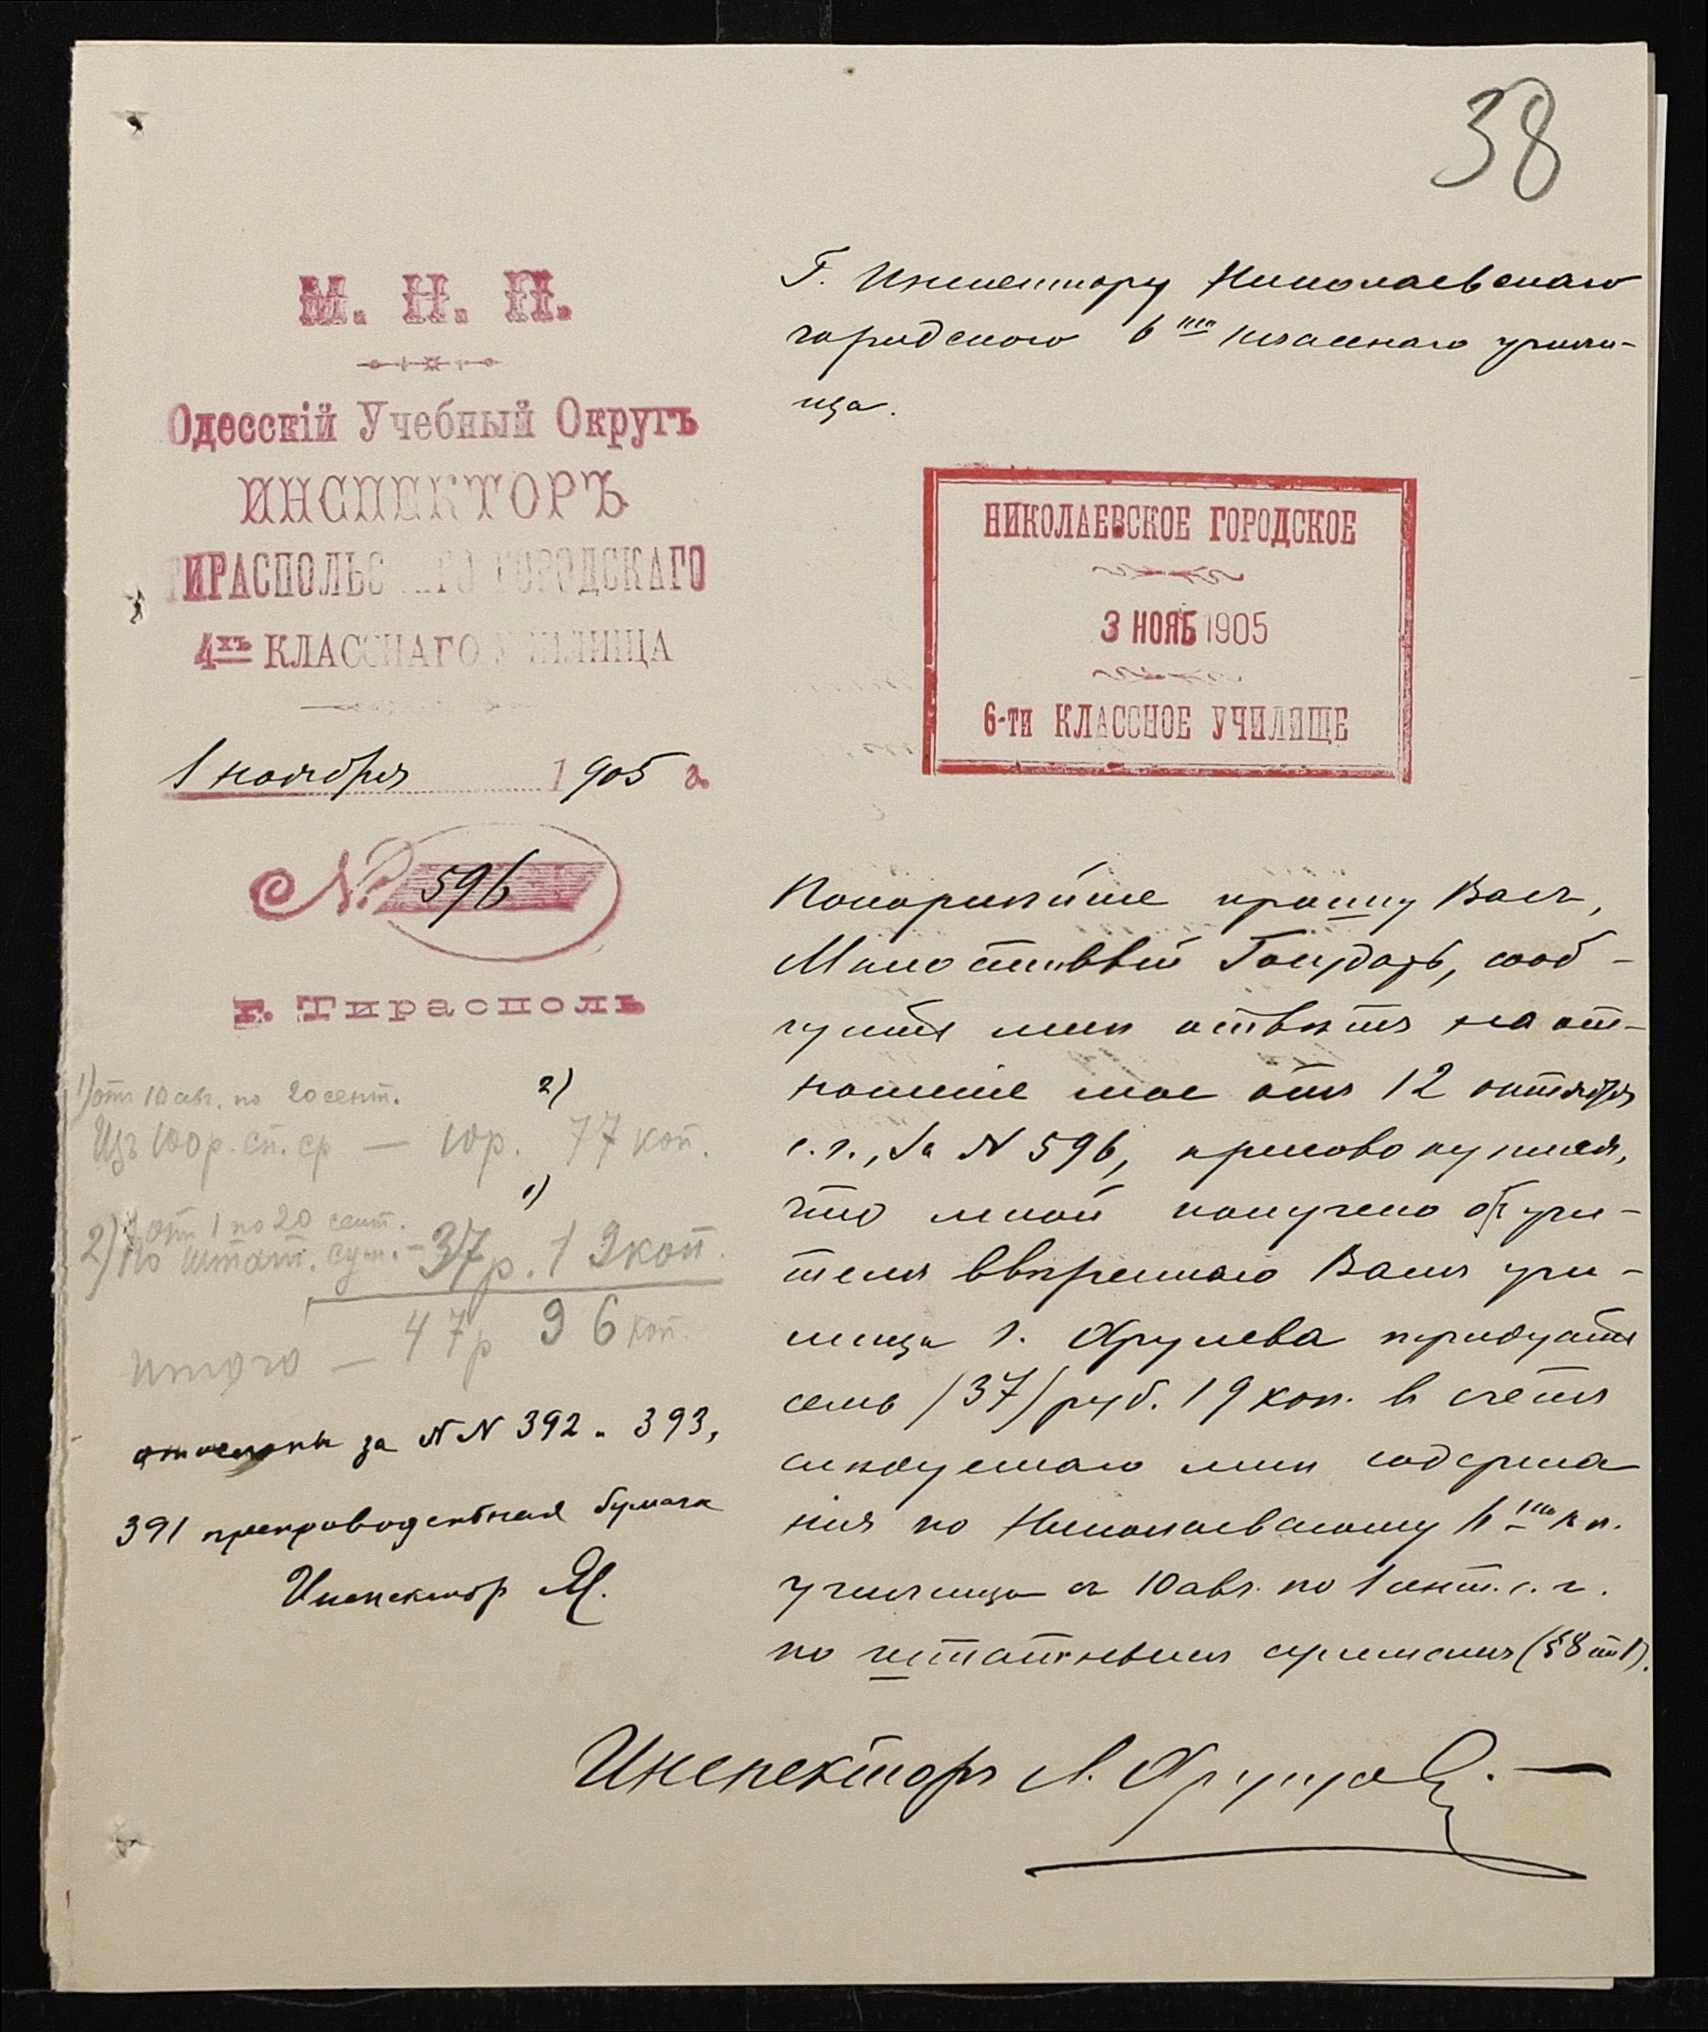 38
М. Н. П.
Одесскій Учебный Округъ
ИНСПЕКТОРЪ
ТИРАСПОЛЬСКАГО ГОРОДСКАГО
4хъ КЛАССНАГО УЧИЛИЩА
1 ноября 1905 г.
№ 596
г. Тирасполь
1) отъ 10 авг. по 20 сент. 2)
Изъ 100 р. сп. ср — 10 р. 77 коп.
1)
отъ 1 по 20 сент.
2) по штат. сум. - 37 р. 19 коп.
47 р 96 коп.
итого —
за NN 392 и 393,
391 препроводительная бумага
Инспекторъ
Г. Инспектору Николаевскаго
городского 6ти класснаго учили-
ща.
НИКОЛАЕВСКОЕ ГОРОДСКОЕ
3 НОЯБ 1905
6-ти КЛАССНОЕ УЧИЛИЩЕ
Покорнѣйше прошу Васъ,
Милостивый Государь, сооб-
щить мнѣ отвѣтъ на от-
ношеніе мое отъ 12 октября
с. г., за N 596, присовокупляя,
что мной получено отъ учи-
теля ввѣреннаго Вамъ учи-
лища г. Хрулева тридцать
семь (37) руб. 19 коп. въ счетъ
слѣдуемаго мнѣ содержа
нія по Николаевскому 6ти кл.
училищу съ 10 авг. по 1 сент. с. г.
по штатнымъ суммамъ (§8 ст 1).
Инспекторъ